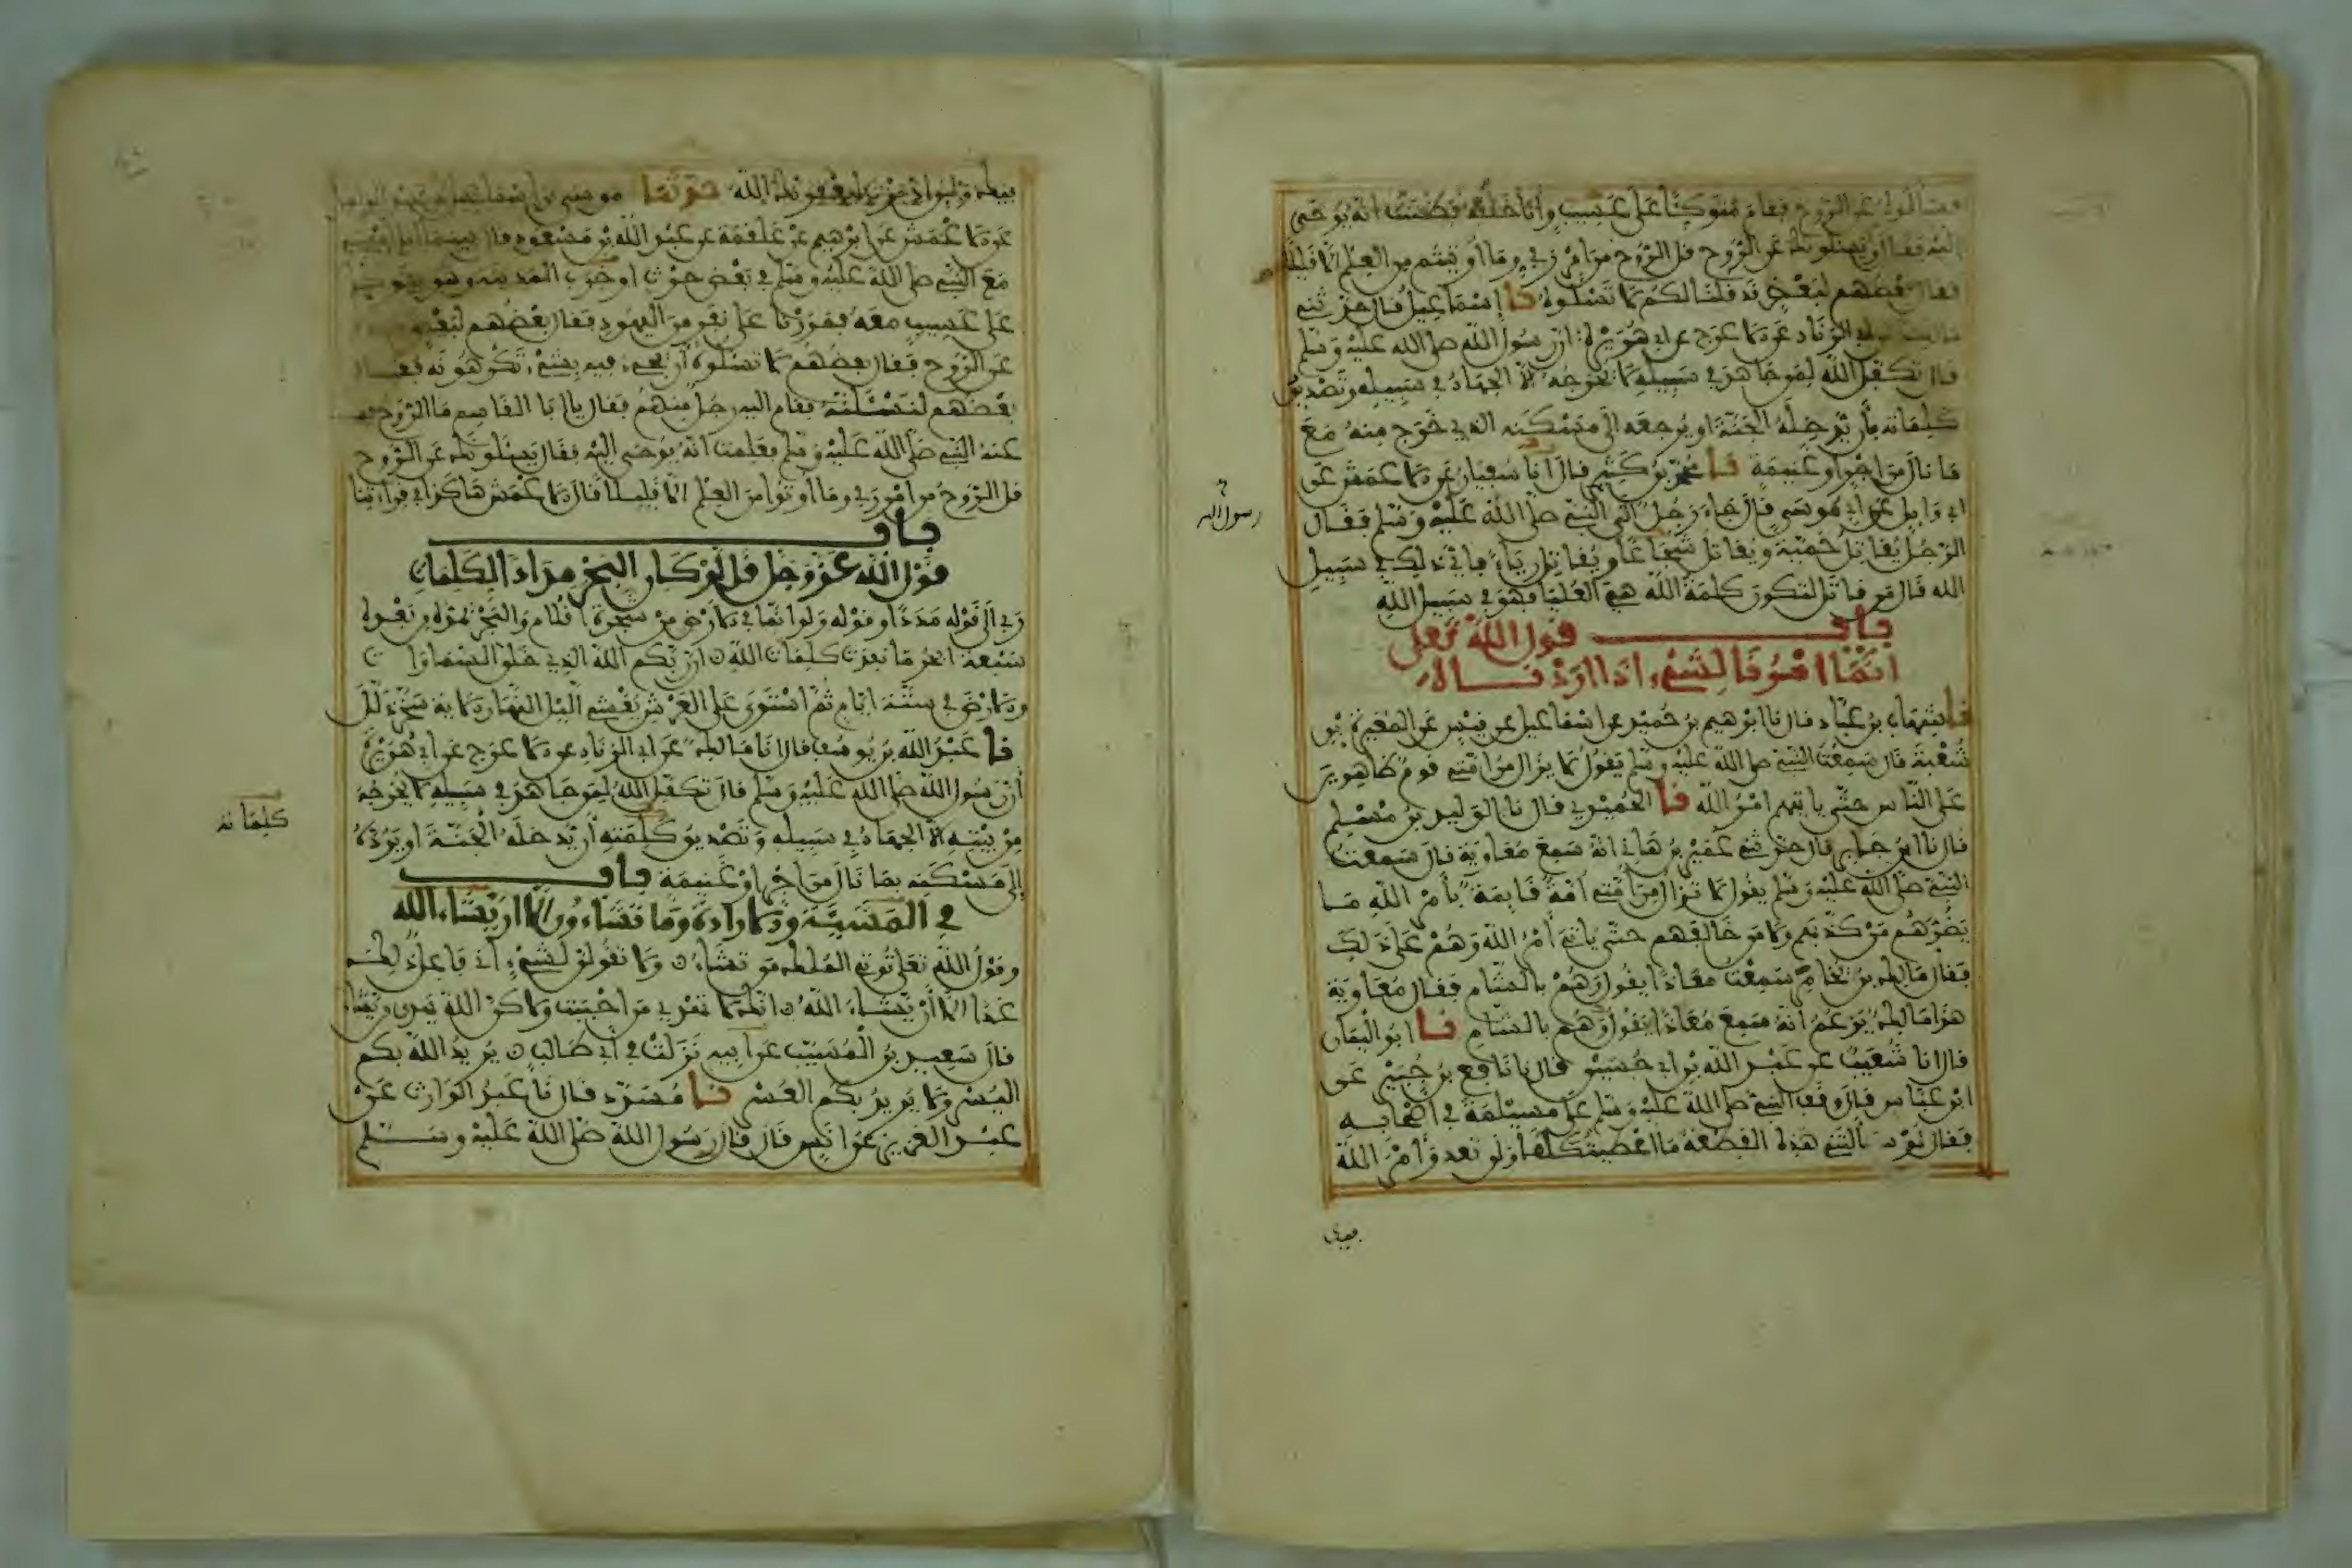 فسألوه عن الروح فقام متوكئا على عسيب وأنا خلفه فظننت أنه يوحى
إليه فقال ويسئلونك عن الروح قل الروح من أمر ربي وما أوتيتم من العلم إلا قليلا
فقال بعضهم لبعض قد قلنا لكم لا تسئلوه نا إسماعيل قال حدثني
مالك عن أبي الزناد عن الأعرج عن أبي هريرة أن رسول الله صلى الله عليه وسلم
قال تكفل الله لمن جاهد في سبيله لا يخرجه إلا الجهاد في سبيله وتصديق
كلماته بأن يدخله الجنة أو يرجعه إلى مسكنه الذي خرج منه مع
ما نال من أجر أو غنيمة نا محمد بن كثير قال أنا سفيان عن الأعمش عن
أبي وايل عن أبي موسى قال جاء رجل إلى النبي صلى الله عليه وسلم فقال
رسول الله
الرجل يقاتل حمية ويقاتل شجاعا ويقاتل رياء فأي ذلك في سبيل
الله قال من قاتل لتكون كلمة الله هي العليا فهو في سبيل الله
باب قول الله تعلى
إنما أمرنا لشيء إذا أردناه
نا شهاب بن عباد قال نا إبرهيم بن حميد عن إسماعيل عن قيس عن المغيرة بن
شعبة قال سمعت النبي صلى الله عليه وسلم يقول لا يزال من أمتي قوم ظاهرين
على الناس حتى ياتيهم أمر الله نا الحميدي قال نا الوليد بن مسلم
قال نا ابن جابر قال حدثني عمير بن هاني أنه سمع معاوية قال سمعت
النبي صلى الله عليه وسلم يقول لا تزال من أمتي أمة قايمة بأمر الله ما
يضرهم من كذبهم ولا من خالفهم حتى ياتي أمر الله وهم على ذلك
فقال مالك بن يخامر سمعت معاذا يقول وهم بالشام فقال معاوية
هذا مالك يزعم أنه سمع معاذا يقول وهم بالشام نا أبو اليمان
قال أنا شعيب عن عبد الله بن أبي حسين قال نا نافع بن جبير عن
ابن عباس قال وقف النبي صلى الله عليه وسلم على مسيلمة في أصحابه
فقال لو سألتني هذه القطعة ما أعطيتكها ولن تعدو أمر الله
حدثنا موسى بن إسماعيل عن عبد الواحد
عن الأعمش عن إبرهيم عن علقمة عن عبد الله بن مسعود قال بينما أنا أمشي
مع النبي صلى الله عليه وسلم في بعض حرث أو خرب المدينة وهو يتوكأ
على عسيب معه فمررنا على نفر من اليهود فقال بعضهم لبعض
عن الروح فقال بعضهم لا تسئلوه أن يجيء فيه بشيء تكرهونه فقال
بعضهم لنسئلنه فقام إليه رجل منهم فقال يا أبا القاسم ما الروح
عنه النبي صلى الله عليه وسلم فعلمت أنه يوحى إليه فقال يسئلونك عن الروح
قل الروح من أمر ربي وما أوتوا من العلم إلا قليلا قال الأعمش هاكذا في قراءتنا
باب
قول الله عز وجل قل لو كان البحر مدادا لكلمات
ربي إلى قوله مددا وقوله ولو أنما في الأرض من شجرة أقلام والبحر يمده من بعده
سبعة أبحر ما نفدت كلمات الله إن ربكم الله الذي خلق السماوات
والأرض في ستة أيام ثم استوى على العرش يغشي اليل النهار الآية سخر ذلل
نا عبد الله بن يوسف قال أنا مالك عن أبي الزناد عن الأعرج عن أبي هريرة
أن رسول الله صلى الله عليه وسلم قال تكفل الله لمن جاهد في سبيله لا يخرجه
كلماته
من بيته إلا الجهاد في سبيله وتصديق كلمته أن يدخله الجنة أو يرده
إلى مسكنه بما نال من أجر أو غنيمة باب
في المشيئة والإرادة وما تشاءون إلا أن يشاء الله
وقول الله تعلى توتي الملك من تشاء ولا تقولن لشيء إني فاعل ذلك
غدا إلا أن يشاء الله إنك لا تهدي من أحببت ولاكن الله يهدي من يشاء
قال سعيد بن المسيب عن أبيه نزلت في أبي طالب يريد الله بكم
اليسر ولا يريد بكم العسر نا مسدد قال نا عبد الوارث عن
عبد العزيز عن أنس قال قال رسول الله صلى الله عليه وسلم